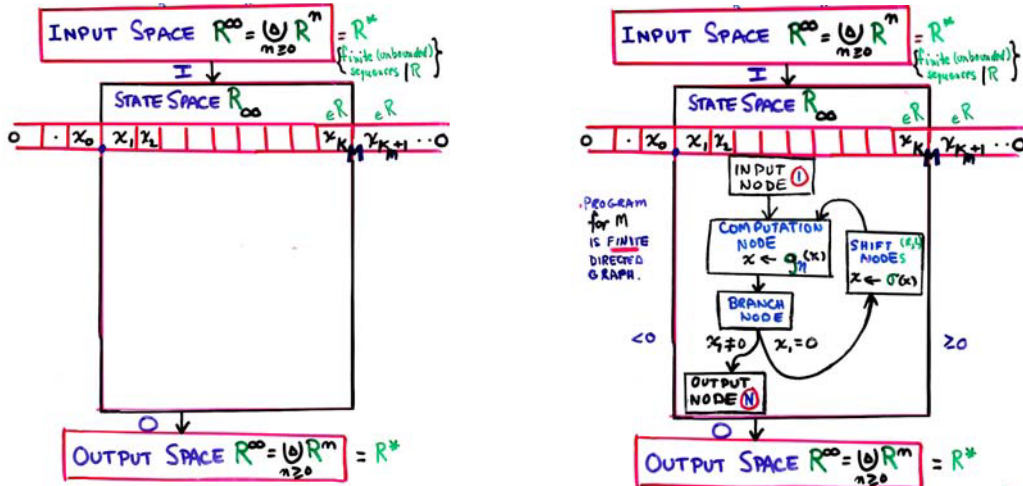 INPUT SPACE R^∞ = ⨃ R^n = R*
n≥0
{finite (unbounded)
sequences / R}
I
STATE SPACE R_∞
∈R ∈R
0 · x₀ x₁ x₂ x_K_M x_K_M+1 ··0
O
OUTPUT SPACE R^∞ = ⨃ R^m = R*
n≥0
INPUT SPACE R^∞ = ⨃ R^n = R*
n≥0
{finite (unbounded)
sequences / R}
I
STATE SPACE R_∞
∈R ∈R
0 · x₀ x₁ x₂ x_K_M x_K_M+1 ··0
INPUT
NODE 1
PROGRAM
for M
IS FINITE
DIRECTED
GRAPH.
COMPUTATION
NODE
x ← g_η(x)
SHIFT
NODES
x ← σ(x)
BRANCH
NODE
<0 ≥0
x₁≠0 x₁=0
OUTPUT
NODE N
O
OUTPUT SPACE R^∞ = ⨃ R^m = R*
n≥0